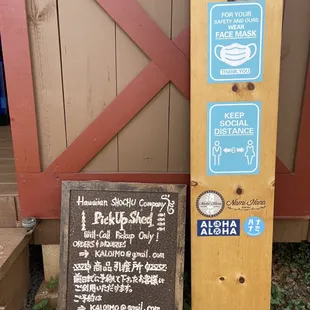 FOR YOUR
SAFETY AND OURS
WEAR
FACE MASK
THANK YOU
KEEP
SOCIAL
DISTANCE
ALOHA
Hawaiian SHOCHU Company
Pick Up Shed
Will-Call Pickup Only!
ORDERS & INQUIRIES
⇒ KALOIMO@gmail.com
⇒ 商品引渡所
前日迄に予約して頂いたお客様に
ご利用いただけます
ご予約は
⇒ KALOIMO@gmail.com